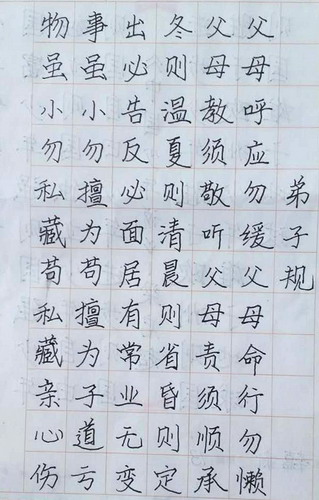 弟子规
父母呼应勿缓父母命行勿懒
父母教须敬听父母责须顺承
冬则温夏则清晨则省昏则定
出必告反必面居有常业无变
事虽小勿擅为苟擅为子道亏
物虽小勿私藏苟私藏亲心伤